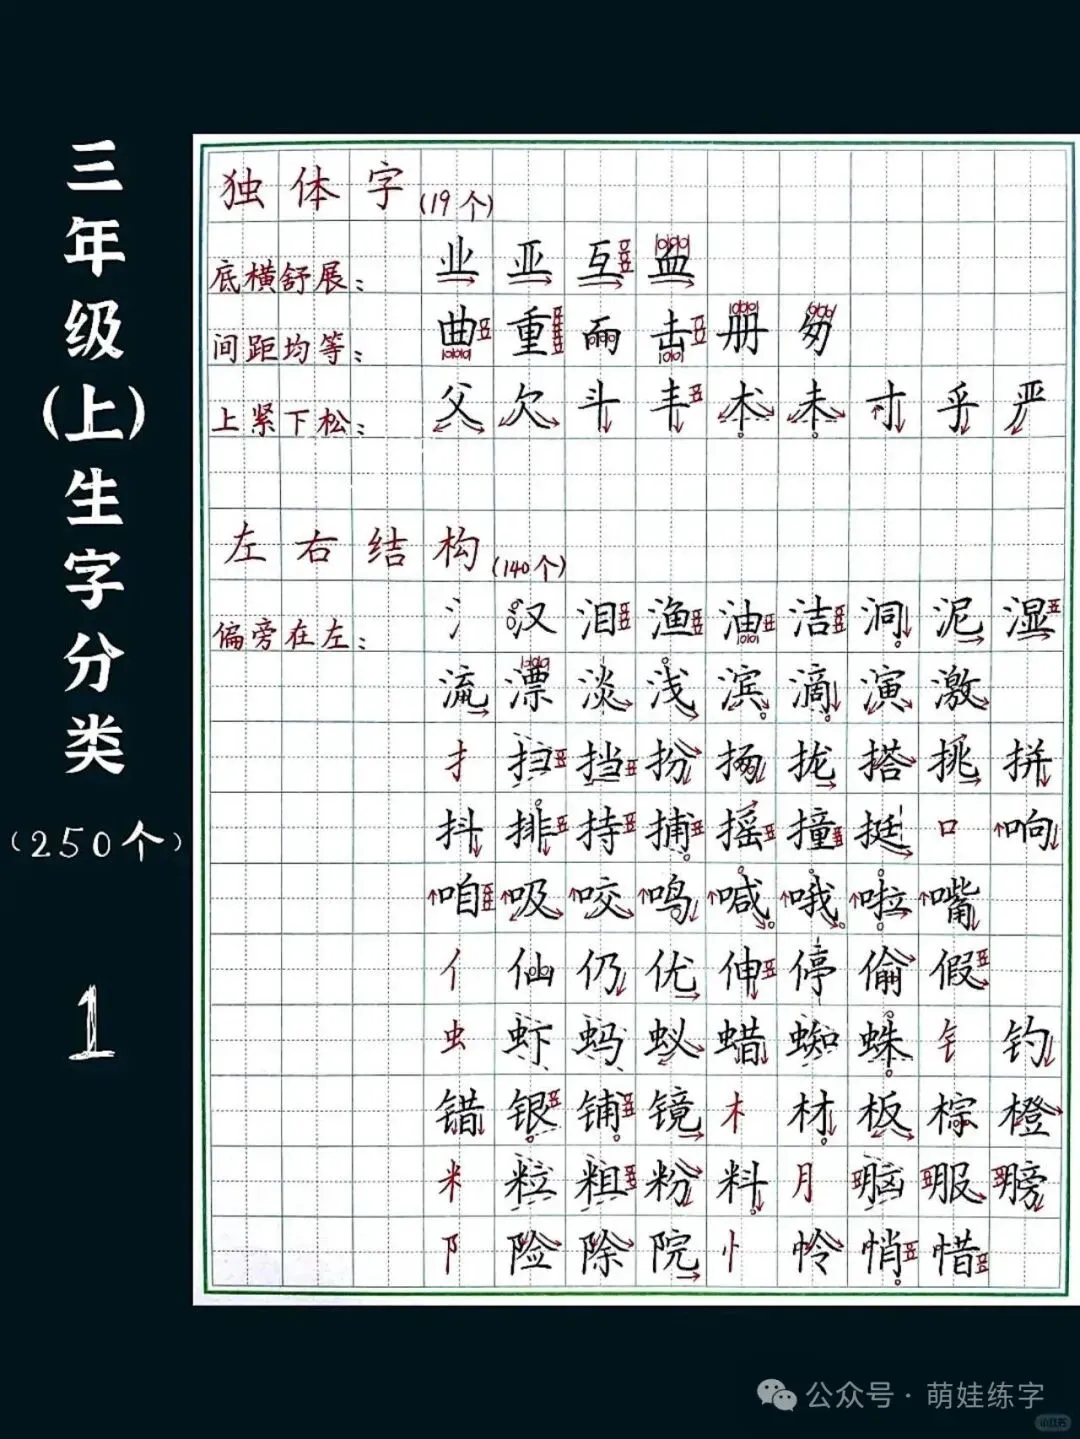 三年级(上)生字分类
(250个)
1
独体字(19个)
底横舒展: 业亚互血
间距均等: 曲重雨击册匆
上紧下松: 父欠斗丰术未寸乎严
左右结构(140个)
偏旁在左: 氵汉泪渔油洁洞泥湿
流漂淡浅滨滴演激
扌扫挡扮扬拢搭挑拼
抖排持捕摇撞挺口响
咱吸咬鸣喊哦啦嘴
亻仙仍优伸停偷假
虫虾蚂蚁蜡蜘蛛钅钓
错银铺镜木材板棕橙
米粒粗粉料月脑服膀
阝险除院忄怜悄惜
公众号·萌娃练字
小红书